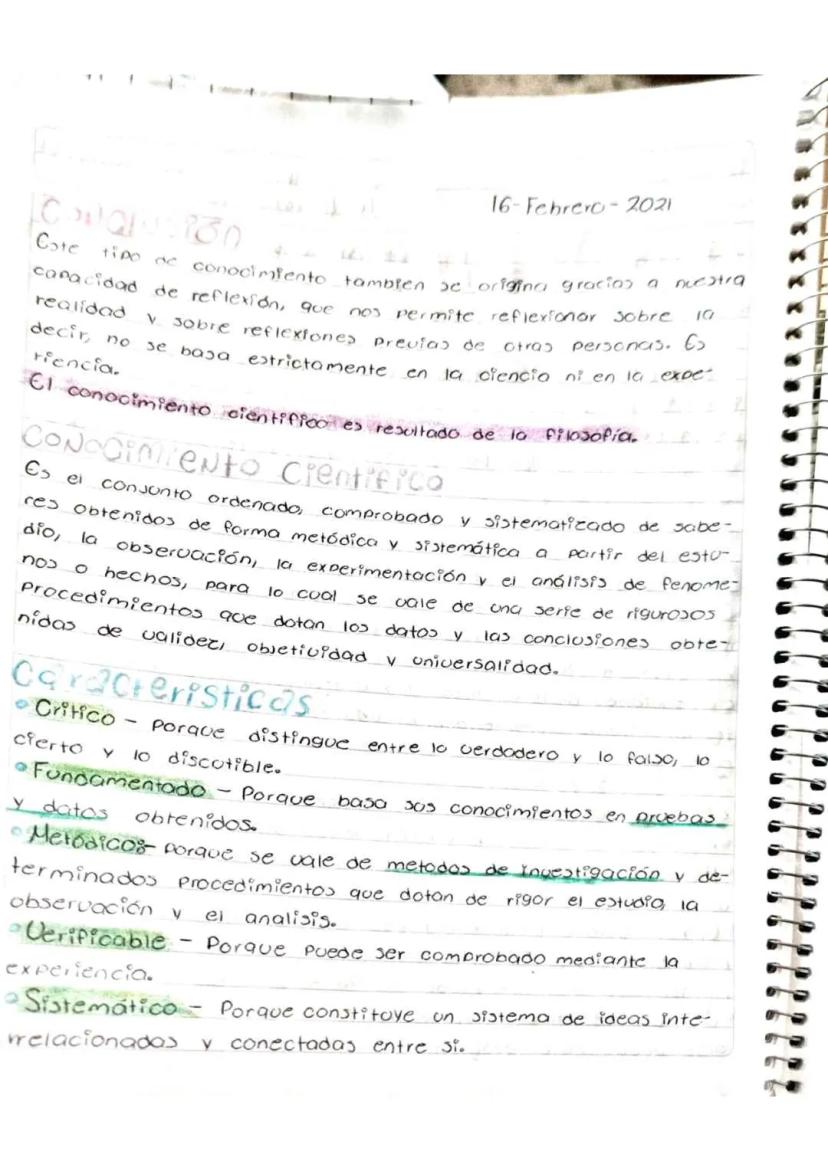 16-Febrero-2021
Conclusión
Este tipo de conocimiento tambien se origina gracias a nuestra
capacidad de reflexión, que nos permite reflexionar sobre la
realidad y sobre reflexiones previas de otras personas. Es
decir, no se basa estrictamente en la ciencia ni en la expe-
riencia.
El conocimiento cientifico es resultado de la filosofía.
Conocimiento Cientifico
Es el conjunto ordenado, comprobado y sistematizado de sabe-
res obtenidos de forma metódica y sistemática a partir del estu-
dio, la observación, la experimentación y el análisis de fenome-
nos o hechos, para lo cual se vale de una serie de rigurosos
procedimientos que dotan los datos y las conclusiones obte-
nidas de validez, objetividad y universalidad.
Caracteristicas
Critico - Porque distingue entre lo verdadero y lo falso, lo
cierto y lo discutible.
Fundamentado - Porque basa sus conocimientos en pruebas
y datos obtenidos.
Metódico:- Porque se vale de metodos de investigación y de-
terminados procedimientos que dotan de rigor el estudio, la
observación y el analisis.
Verificable - Porque puede ser comprobado mediante la
experiencia.
Sistemático - Porque constituye un sistema de ideas inte-
rrelacionadas y conectadas entre si.